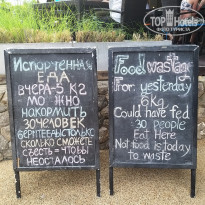 TOPHOTELS
Испорченная
ЕДА
ВЧЕРА-5 КГ
МОЖНО
НАКОРМИТЬ
30 ЧЕЛОВЕК
БЕРИТЕ ВЫ СТОЛЬКО
СКОЛЬКО СМОЖЕТЕ
СЪЕСТЬ=ЧТОБЫ
НЕОСТАЛОСЬ
Food wastage
From: yesterday
6kg
Could have fed
:30 people
Eat Here
Not food is today
to waste